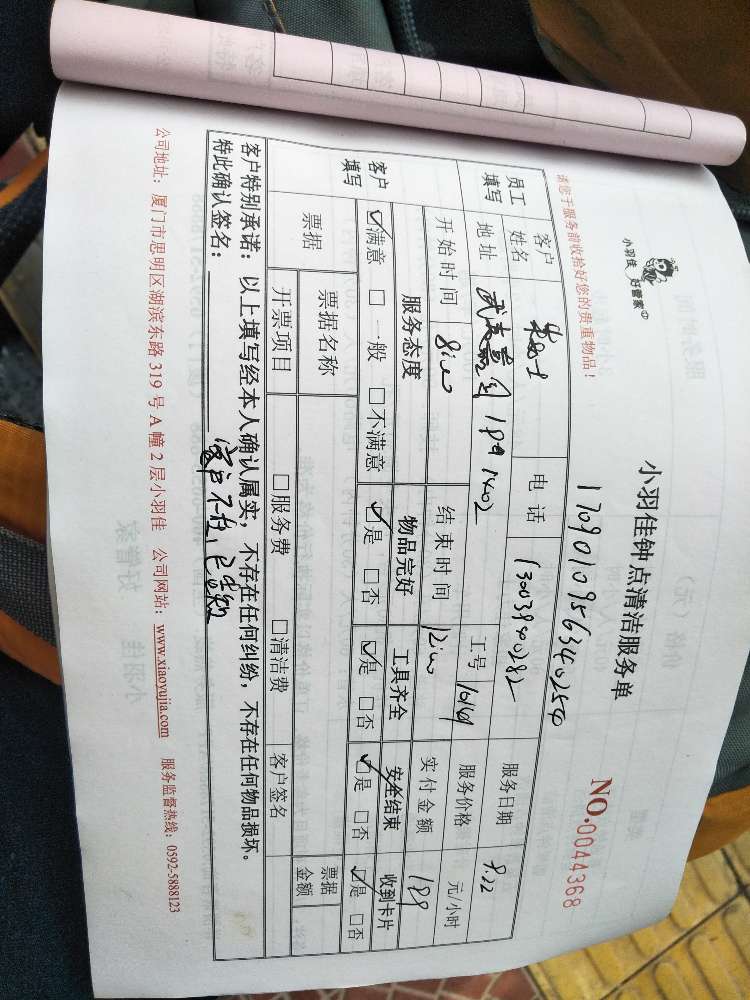 小羽佳 好管家
小羽佳钟点清洁服务单
NO.0044368
请您于服务前收拾好您的贵重物品！
员工填写 客户姓名 电话 13003940282 服务日期 8.22
地址 189 1402 工号 服务价格 元/小时
开始时间 8:00 结束时间 12:00 实付金额 189
客户填写 服务态度 物品完好 工具齐全 安全结束 收到卡片
☑满意 □一般 □不满意 ☑是 □否 ☑是 □否 ☑是 □否 ☑是 □否
票据 票据名称 □服务费 □清洁费 客户签名 票据金额
开票项目
客户特别承诺：以上填写经本人确认属实，不存在任何纠纷，不存在任何物品损坏。
特此确认签名：客户不在，已告知
公司地址：厦门市思明区湖滨东路 319 号 A 幢 2 层小羽佳 公司网站：www.xiaoyujia.com 服务监督热线：0592-5888123